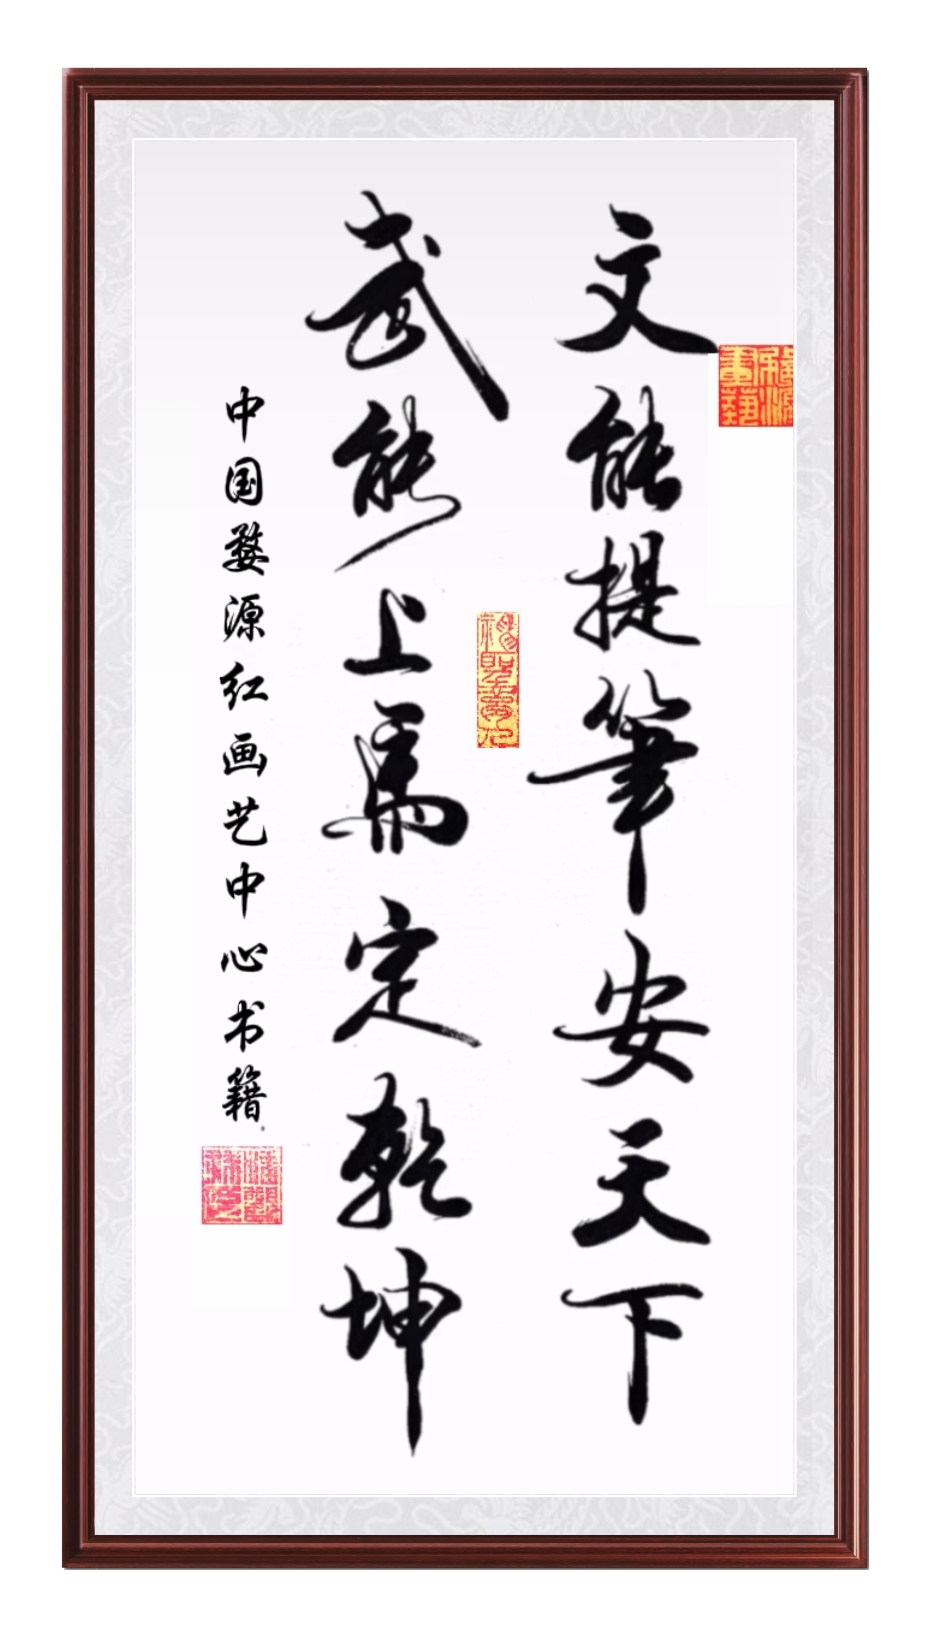 文能提筆安天下
武能上馬定乾坤
中国婺源红画艺中心书籍